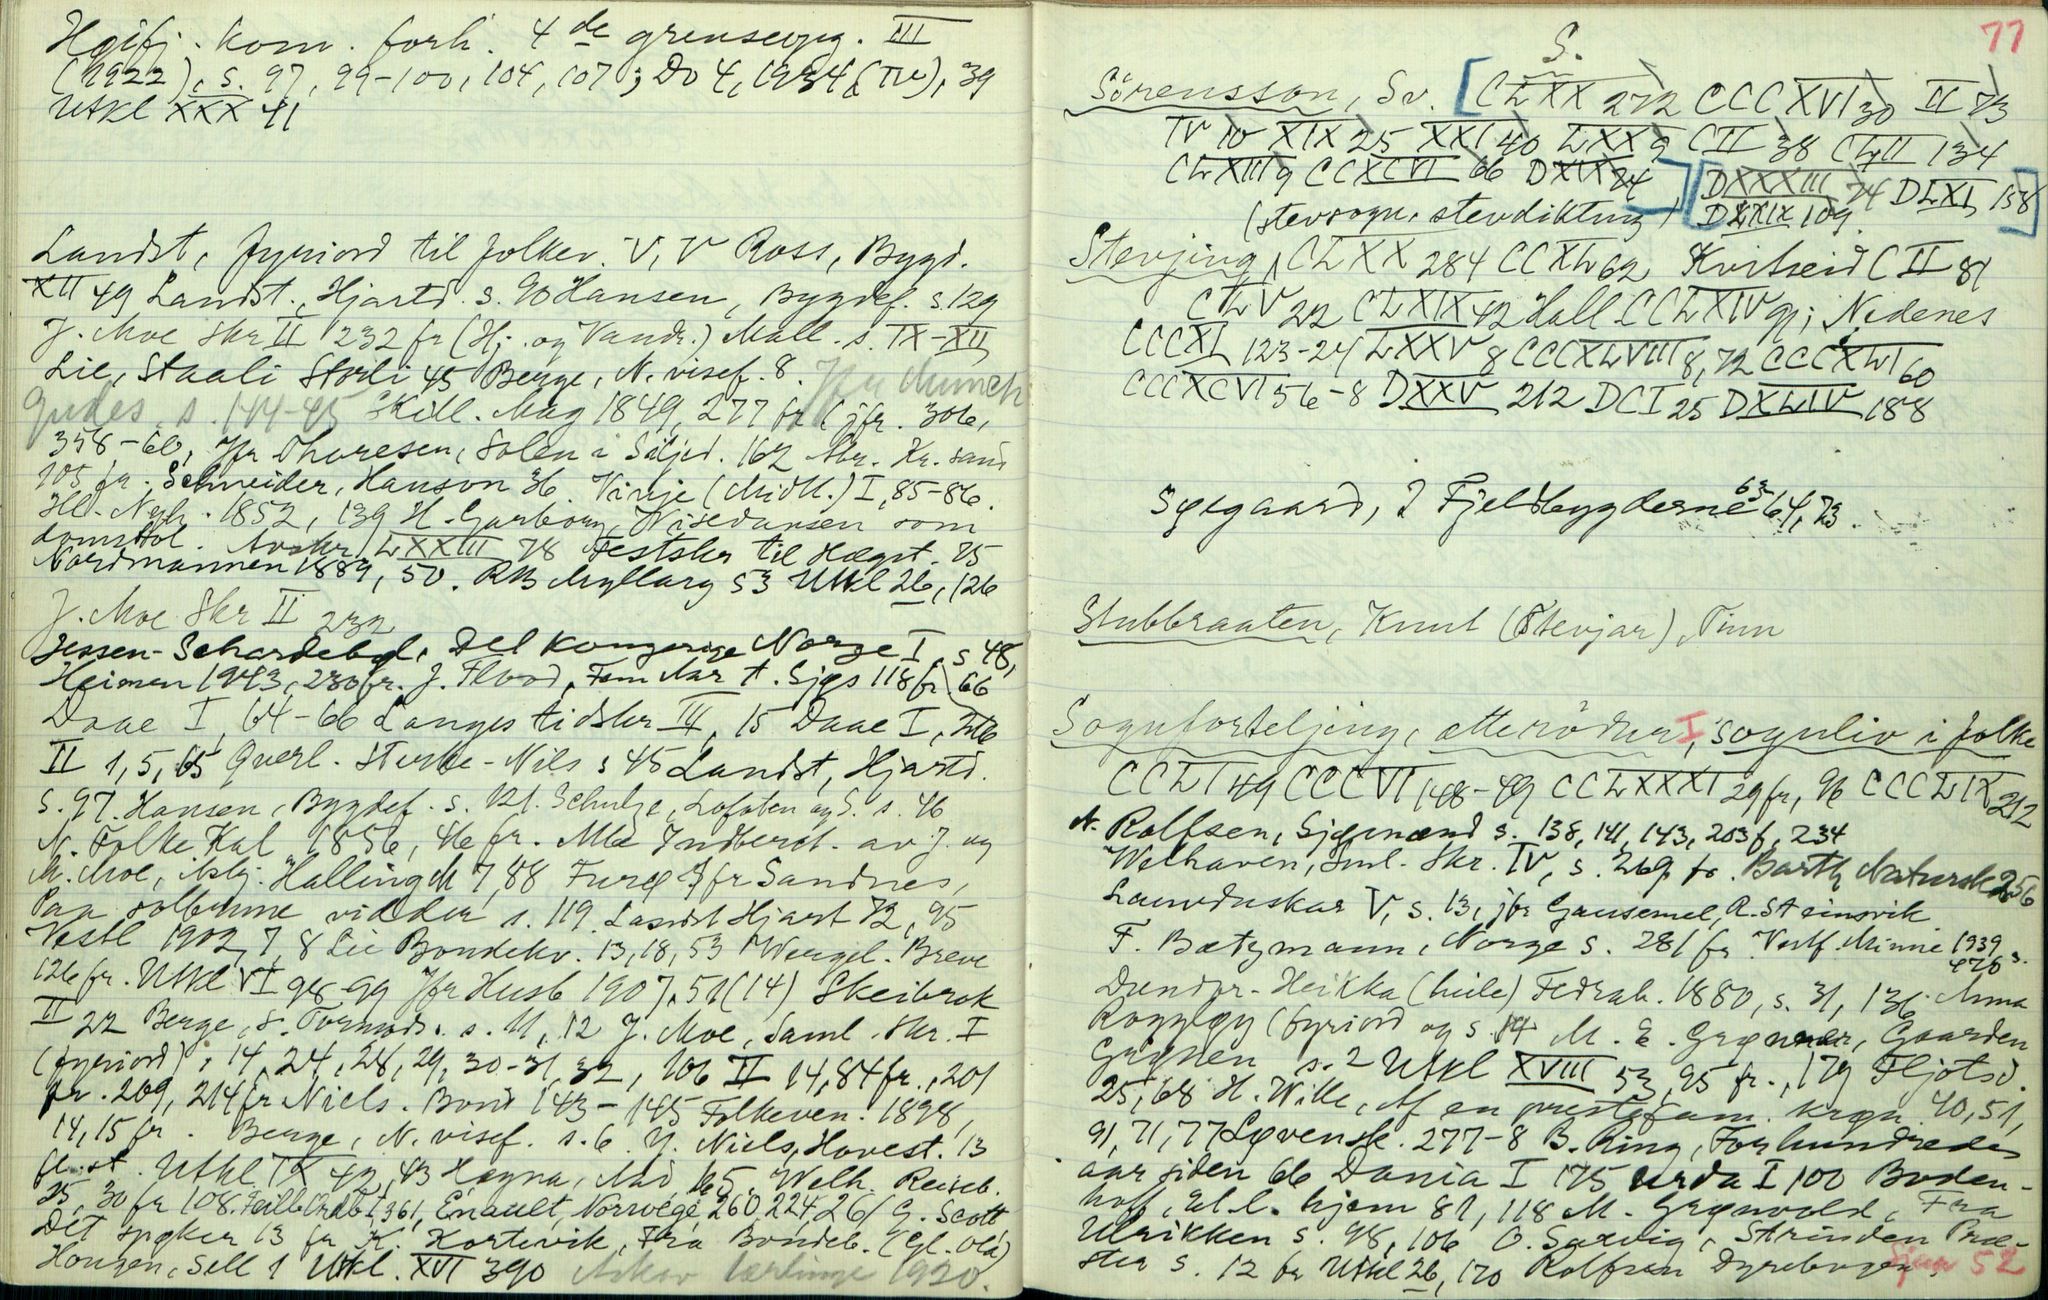 Hgifj. kom. forh. 4de grensegg. III
(1922), s. 97, 99-100, 104, 107; Do 4, 1934 (IV), 39
Utkl XXX 41
Landst, fyriord til folkev. V, V Ross, Bygd.
XII 49 Landst., Hjartd. s. 90 Hansen, Bygdef. s. 129
J. Moe Skr II 232 fr (Hj. og Vandr.) Mall. s. IX-XII
Lie, Staali Storli 45 Berge, N. visef. 8. Jfr Munch
gudes. s. 144-45 Skill. Mag 1849, 277 fr (jfr. 306,
358-60, Jfr Thoresen, Solen i Siljed. 162 Kr. sand
105 fr. Schneider, Hanson 36. Vinje (Midtt.) I, 85-86.
Ill. Nyh. 1852, 139 H. Garborg, Visedansen som
domstol. Avskr. LXXIII 78 Festskr til Hægst. 75
Nordmannen 1889, 50. RB Myllarg 53 Utkl 26, 126
J. Moe Skr II 232
Jessen-Schardebøl, Det Kongerige Norge I, s 48,
Heimen 1943, 230 fr. J. Flood, Fem Aar t. Sjøs 118 fr 66
Daae I, 64-66 Langes tidskr III, 15 Daae I, 26
II 1, 5, 65 Qverl. Sterke-Nils s 45 Landst, Hjartd.
s. 97. Hansen, Bygdef. s. 121. Schulze, Lofoten og S. s. 46
N. Folke Kal 1856, 46 fr. Mlæ Indberet. av J. og
M. Moe, Asbj. Halling M 7, 88 Furq Jfr Sandnes,
Paa solbrune vidder s. 119. Landst Hjart 72, 95
Vestl 1902, 7, 8 Lie Bondekv. 13, 18, 53 Wergel. Breve
126 fr. Utkl VI 98-99 Jfr Husb 1907, 51 (14) Skeibrok
II 22 Berge, s. Tormods. s. 11, 12 J. Moe, Saml. Skr. I
(fyriord), 14, 24, 28, 29, 30-31, 32, 106 II 14, 84 fr., 201
fr. 209, 214 fr Niels. Bond 143-145 Folkeven. 1898,
14, 15 fr. Berge, N. visef. s. 6 Y. Niels, Hovest. 13
fl. st. Utkl. IX 42, 43 Høgna, Mid 65. Welh. Reiseb.
25, 30 fr 108. Feilb Ordb I, 361, Enault, Norvège 260, 224, 26 G. Scott
Det spøker 13 fr K. Kortevik, Fra Bondeb. (Gl. Ola)
Hougen, Sell 1 Utkl. XVI 390 Askov Lærlinge 1920.
77
S.
Sørensson, Sv. [CLXX 272 CCCXVI 30 II 73
IV 10 XIX 25 XXI 40 LXX 9 CII 38 CLII 134
CLXIII 9 CCXCVI 66 DXIX 24] [DXXXIII 74 DLXI 158
(stevsogn, stevdikting) DLXIX 109]
Stevjing, CLXX 284 CCXL 62 Kvitseid CII 81
CLV 22 CLXIX 42 Hall CCLXIV 91; Nedenes
CCCXI 123-24 LXXV 8 CCCXLVIII 8, 72 CCCXLVI 60
CCCXCVI 56-8 DXXV 212 DCI 25 DXLIV 188
Søegaard, I Fjeldbygderne 63 64, 73.
Stubbraaten, Knut (Stevjar), Tinn
Sognforteljing, ætterödur I, sognliv i folke
CCLI 49 CCCVI 148-49 CCLXXXI 29 fr, 96 CCCLIX 212
N. Rolfsen, Sjømænd s. 138, 141, 143, 203 f, 234
Welhaven, Saml. Skr. IV, s. 269 fr. Barth Natursk 256
Lauvduskar V, s. 13, jfr Gausemel, R. Steinsvik
F. Bætzmann, Norge s. 281 fr Vestf. Minne 1939 s.
476
Dunder-Heikka (hile) Fedrah. 1880, s. 31, 136. Anna
Rogggy (fyriord og s. 14 M. E. Grønner, Gaarden
Grignen s. 2 Utkl XVIII 53, 95 fr., 179 Fljotsd.
25, 68 H. Wille, Af en prestefam. krøn. 40, 51,
91, 71, 77 Løvensk. 277-8 B. Ring, For hundrede
aar siden 66 Dania I 175 Urda I 100 Boden-
hoff, Et l. hjem 81, 118 M. Grønvold, Fra
Ulriken s. 98, 106 O. Sarvig, Strinden Præ-
ster s. 12 fr Utkl 26, 170 Rolfsen Dyrebogen,
Sjaa 52